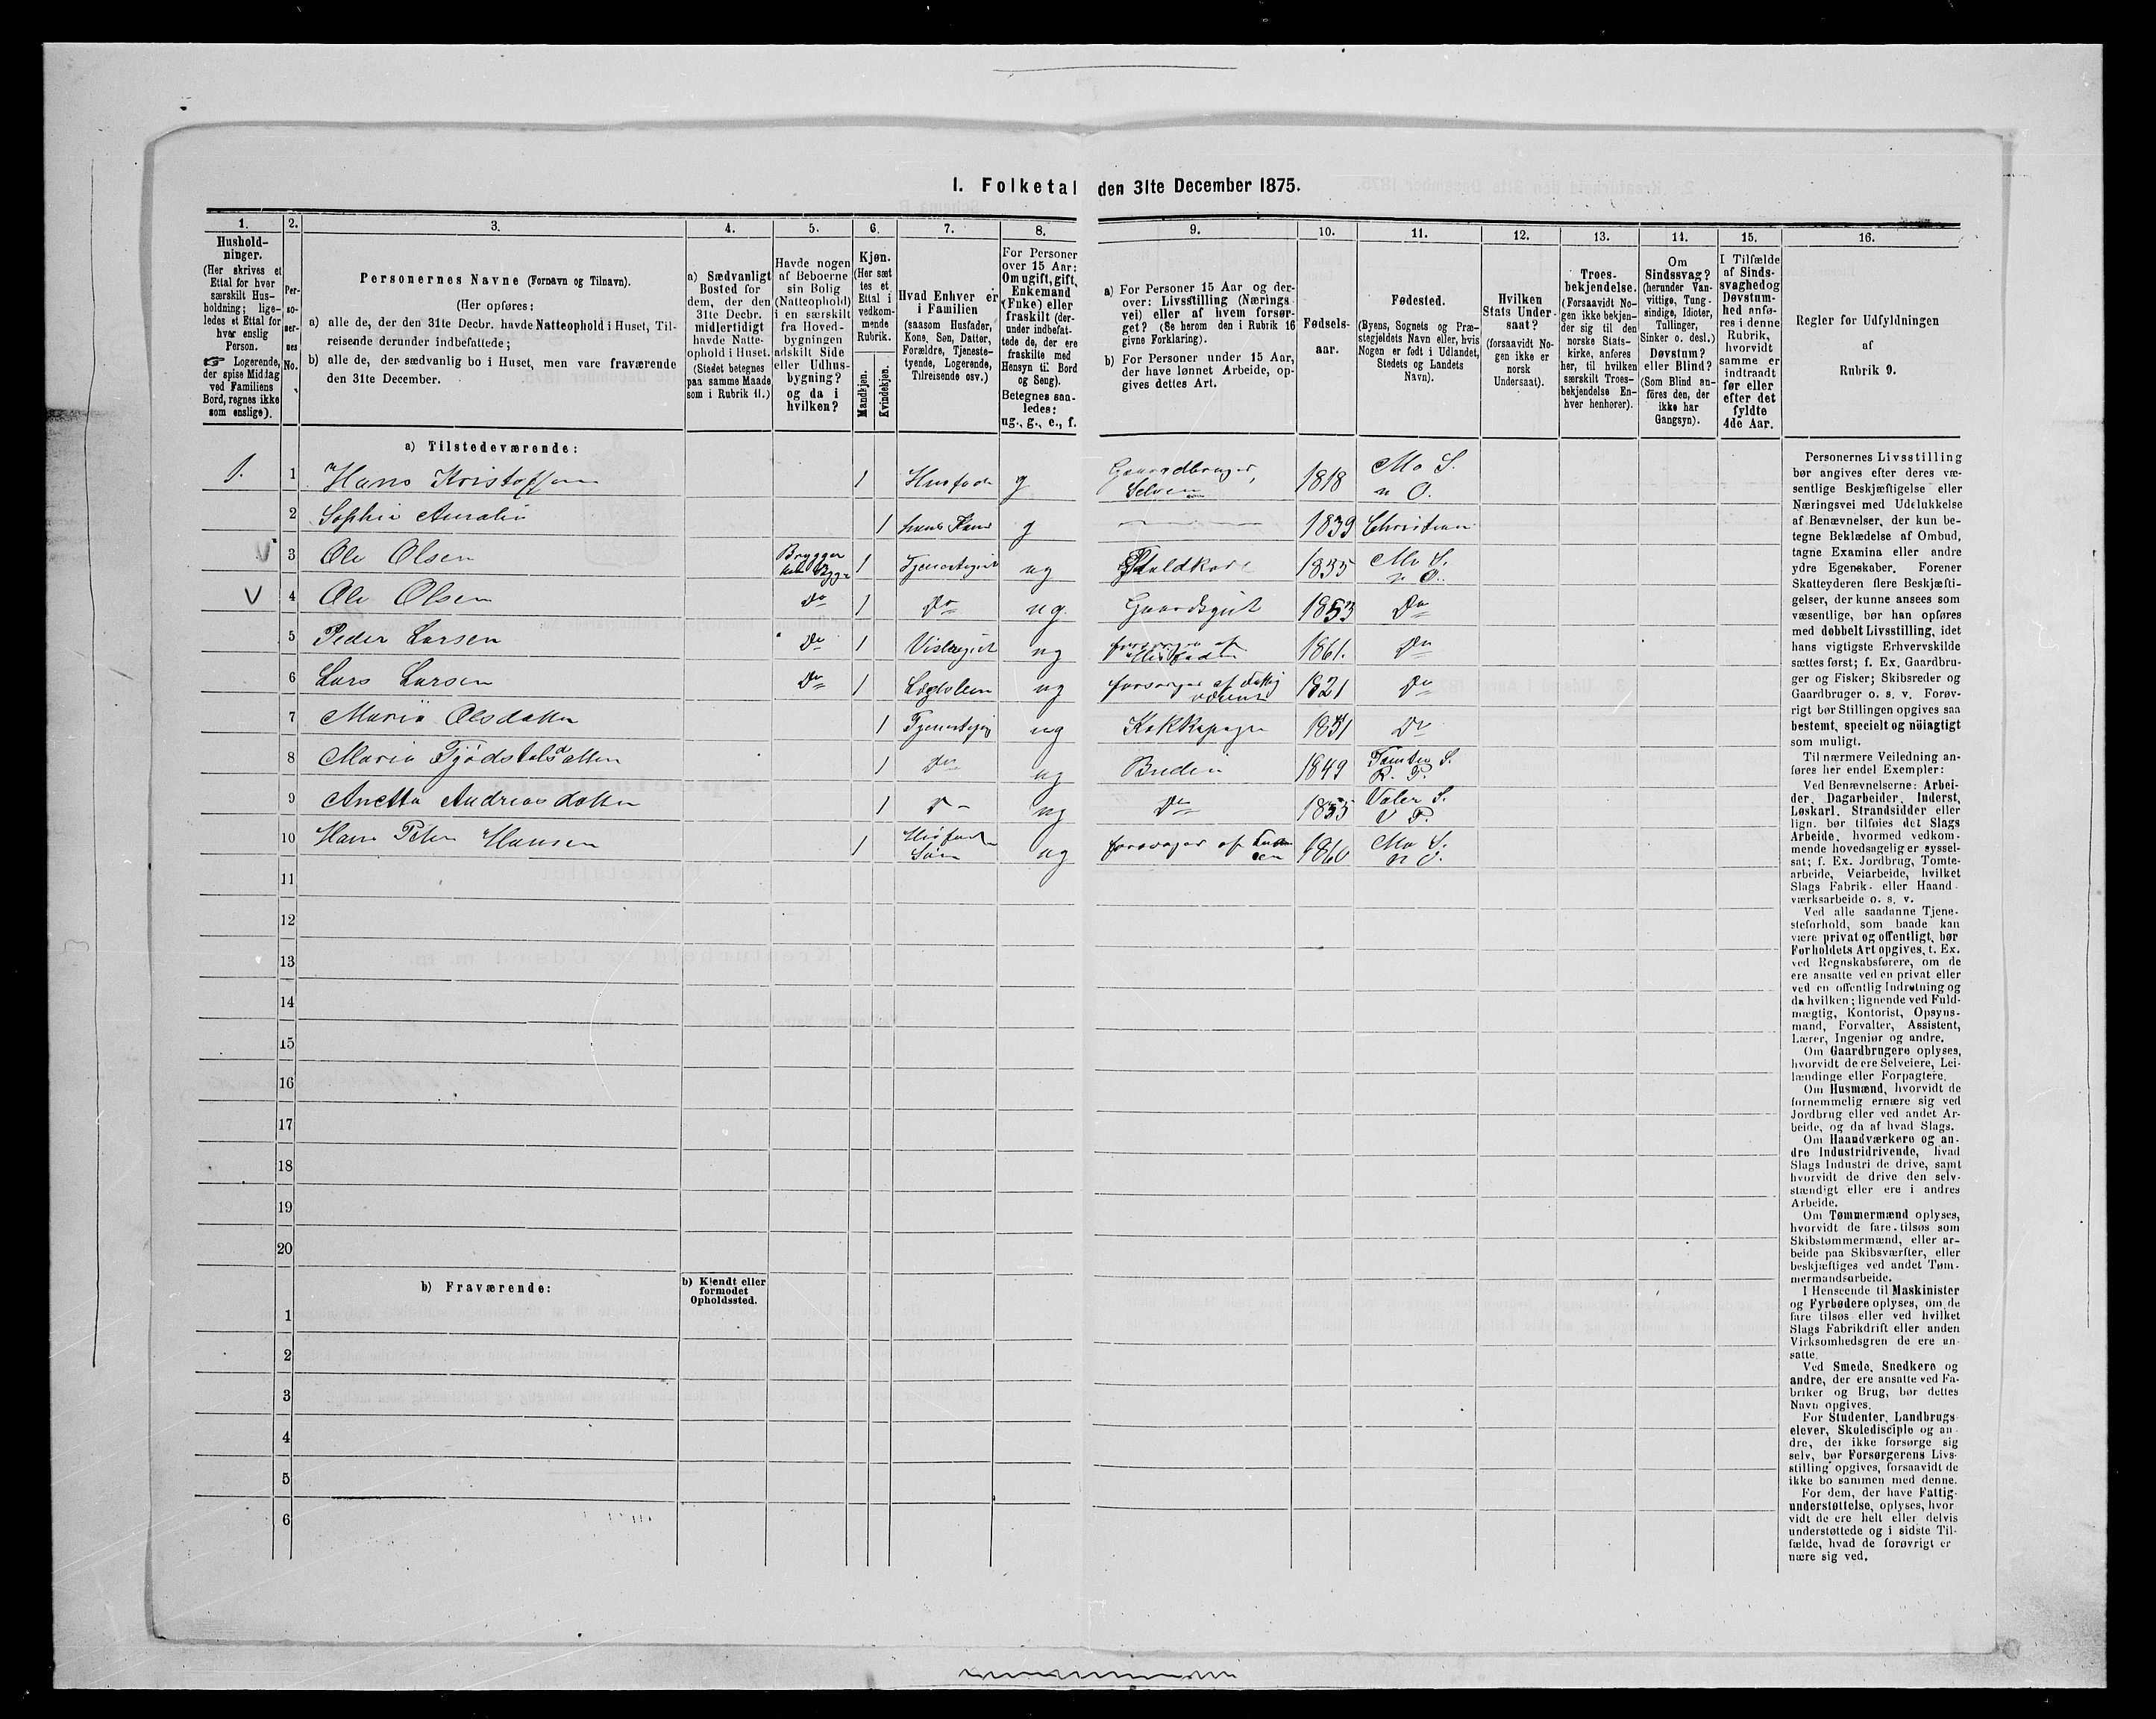 I. Folketal den 31te December 1875.
1.
Hushold-
ninger.
(Her skrives et
Ettal for hver
særskilt Hus-
holdning; lige-
ledes et Ettal for
hver enslig
Person.
☞ Logerende,
der spise Middag
ved Familiens
Bord, regnes ikke
som enslige).
2.
Per-
so-
ner-
nes
No.
3.
Personernes Navne (Fornavn og Tilnavn).
(Her opføres:
a) alle de, der den 31te Decbr. havde Natteophold i Huset, Til-
reisende derunder indbefattede;
b) alle de, der sædvanlig bo i Huset, men vare fraværende
den 31te December.
4.
a) Sædvanligt
Bosted for
dem, der den
31te Decbr.
midlertidigt
havde Natte-
ophold i Huset.
(Stedet betegnes
paa samme Maade
som i Rubrik 11.)
5.
Havde nogen
af Beboerne
sin Bolig
(Natteophold)
i en særskilt
fra Hoved-
bygningen
adskilt Side
eller Udhus-
bygning?
og da i
hvilken?
6.
Kjøn.
(Her sæt
tes et
Ettal i
vedkom-
mende
Rubrik.
Mandkjøn.
Kvindekjøn.
7.
Hvad Enhver er
i Familien
(saasom Husfader,
Kone, Søn, Datter,
Forældre, Tjeneste-
tyende, Logerende,
Tilreisende osv.)
8.
For Personer
over 15 Aar:
Om ugift, gift,
Enkemand
(Enke) eller
fraskilt (der-
under indbefat-
tede de, der ere
fraskilte med
Hensyn til Bord
og Seng).
Betegnes saa-
ledes:
ug., g., e., f.
9.
a) For Personer 15 Aar og der-
over: Livsstilling (Nærings
vei) eller af hvem forsør-
get? (Se herom den i Rubrik 16
givne Forklaring).
b) For Personer under 15 Aar,
der have lønnet Arbeide, op-
gives dettes Art.
10.
Fødsels-
aar.
11.
Fødested.
(Byens, Sognets og Præ-
stegjeldets Navn eller, hvis
Nogen er født i Udlandet,
Stedets og Landets
Navn).
12.
Hvilken
Stats Under-
saat?
(forsaavidt No-
gen ikke er
norsk
Undersaat).
13.
Troes-
bekjendelse.
(Forsaavidt No-
gen ikke bekjen-
der sig til den
norske Stats-
kirke, anføres
her, til hvilken
særskilt Troes-
bekjendelse En-
hver henhører).
14.
Om
Sindssvag?
(herunder Van-
vittige, Tung-
sindige, Idioter,
Tullinger,
Sinker o. desl.)
Døvstum?
eller Blind?
(Som Blind an-
føres den, der
ikke har
Gangsyn).
15.
I Tilfælde
af Sinds-
svaghed og
Døvstum-
hed anfø-
res i denne
Rubrik,
hvorvidt
samme er
indtraadt
før eller
efter det
fyldte
4de Aar.
16.
Regler for Udfyldningen
af
Rubrik 9.
a) Tilstedeværende:
1. 1 Hans Kristoffersen 1 Husfader g Gaardbruger, Selveier 1818 Mo S. n O.
2 Sophie Amalie 1 hans Kone g 1839 Christian
3 Ole Olsen 1 Tjenestegut ug 1835 Mo S. n O.
4 Ole Olsen Do 1 Do ug. Gaardsgut 1853 Do
5 Peder Larsen Do 1 Visergut ug 1861. Do
6 Lars Larsen Do 1 Lægdslem ug forsørges af Fattigvæsenet 1821 Do
7 Maria Olsdatter 1 Tjenestepig ug Kokkepige 1831 Do
8 Maria 1 Do ug Budeie 1849
9 Anetta Andreasdatter 1 Do ug Do 1855 Valer S. V P.
10 Hans Peter Hansen 1 Husfaders Søn ug forsørges af Faderen 1860 Mo S. n O.
11
12
13
14
15
16
17
18
19
20
b) Fraværende:
b) Kjendt eller
formodet
Opholdssted.
1
2
3
4
5
6
Personernes Livsstilling
bør angives efter deres væ-
sentlige Beskjæftigelse eller
Næringsvei med Udelukkelse
af Benævnelser, der kun be-
tegne Beklædelse af Ombud,
tagne Examina eller andre
ydre Egenskaber. Forener
Skatteyderen flere Beskjæfti-
gelser, der kunne ansees som
væsentlige, bør han opføres
med dobbelt Livsstilling, idet
hans vigtigste Erhvervskilde
sættes først; f. Ex. Gaardbru-
ger og Fisker; Skibsreder og
Gaardbruger o. s. v. Forøv-
rigt bør Stillingen opgives saa
bestemt, specielt og nöiagtigt
som muligt.
Til nærmere Veiledning an-
føres her endel Exempler:
Ved Benævnelserne: Arbei-
der, Dagarbeider, Inderst,
Løskarl, Strandsidder eller
lign. bør tilføies det Slags
Arbeide, hvormed vedkom-
mende hovedsagelig er syssel-
sat; f. Ex. Jordbrug, Tomte-
arbeide, Veiarbeide, hvilket
Slags Fabrik- eller Haand-
værksarbeide o. s. v.
Ved alle saadanne Tjene-
steforhold, som baade kan
være privat og offentligt, bør
Forholdets Art opgives, t. Ex.
ved Regnskabsførere, om de
ere ansatte ved en privat eller
ved en offentlig Indretning og
da hvilken; lignende ved Fuld-
mægtig, Kontorist, Opsyns-
mand, Forvalter, Assistent,
Lærer, Ingeniør og andre.
Om Gaardbrugere oplyses,
hvorvidt de ere Selveiere, Lei-
lændinge eller Forpagtere.
Om Husmænd, hvorvidt de
fornemmelig ernære sig ved
Jordbrug eller ved andet Ar-
beide, og da af hvad Slags.
Om Haandværkere og an-
dre Industridrivende, hvad
Slags Industri de drive, samt
hvorvidt de drive den selv-
stændigt eller ere i andres
Arbeide.
Om Tømmermænd oplyses,
hvorvidt de fare tilsøs som
Skibstømmermænd, eller ar-
beide paa Skibsværfter, eller
beskjæftiges ved andet Tøm-
mermandsarbeide.
I Henseende til Maskinister
og Fyrbødere oplyses, om de
fare tilsøs eller ved hvilket
Slags Fabrikdrift eller anden
Virksomhedsgren de ere an-
satte.
Ved Smede, Snedkere og
andre, der ere ansatte ved Fa-
briker og Brug, bør dettes
Navn opgives.
For Studenter, Landbrugs-
elever, Skoledisciple og an-
dre, der ikke forsørge sig
selv, bør Forsørgerens Livs-
stilling opgives, forsaavidt de
ikke bo sammen med denne.
For dem, der have Fattig-
understøttelse, oplyses, hvor-
vidt de ere helt eller delvis
understøttede og i sidste Til-
fælde, hvad de forøvrigt er-
nære sig ved.